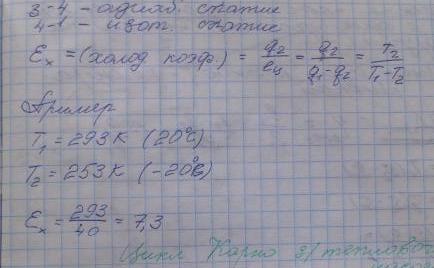 3-4 – адиаб. сжатие
4-1 – изот. сжатие
Eₓ = (холод коэф.) = q₂/eц = q₂/q₁-q₂ = T₂/T₁-T₂
Пример
T₁ = 293К (20°С)
T₂ = 253К (-20°С)
Eₓ = 293/40 = 7,3
Цикл Карно